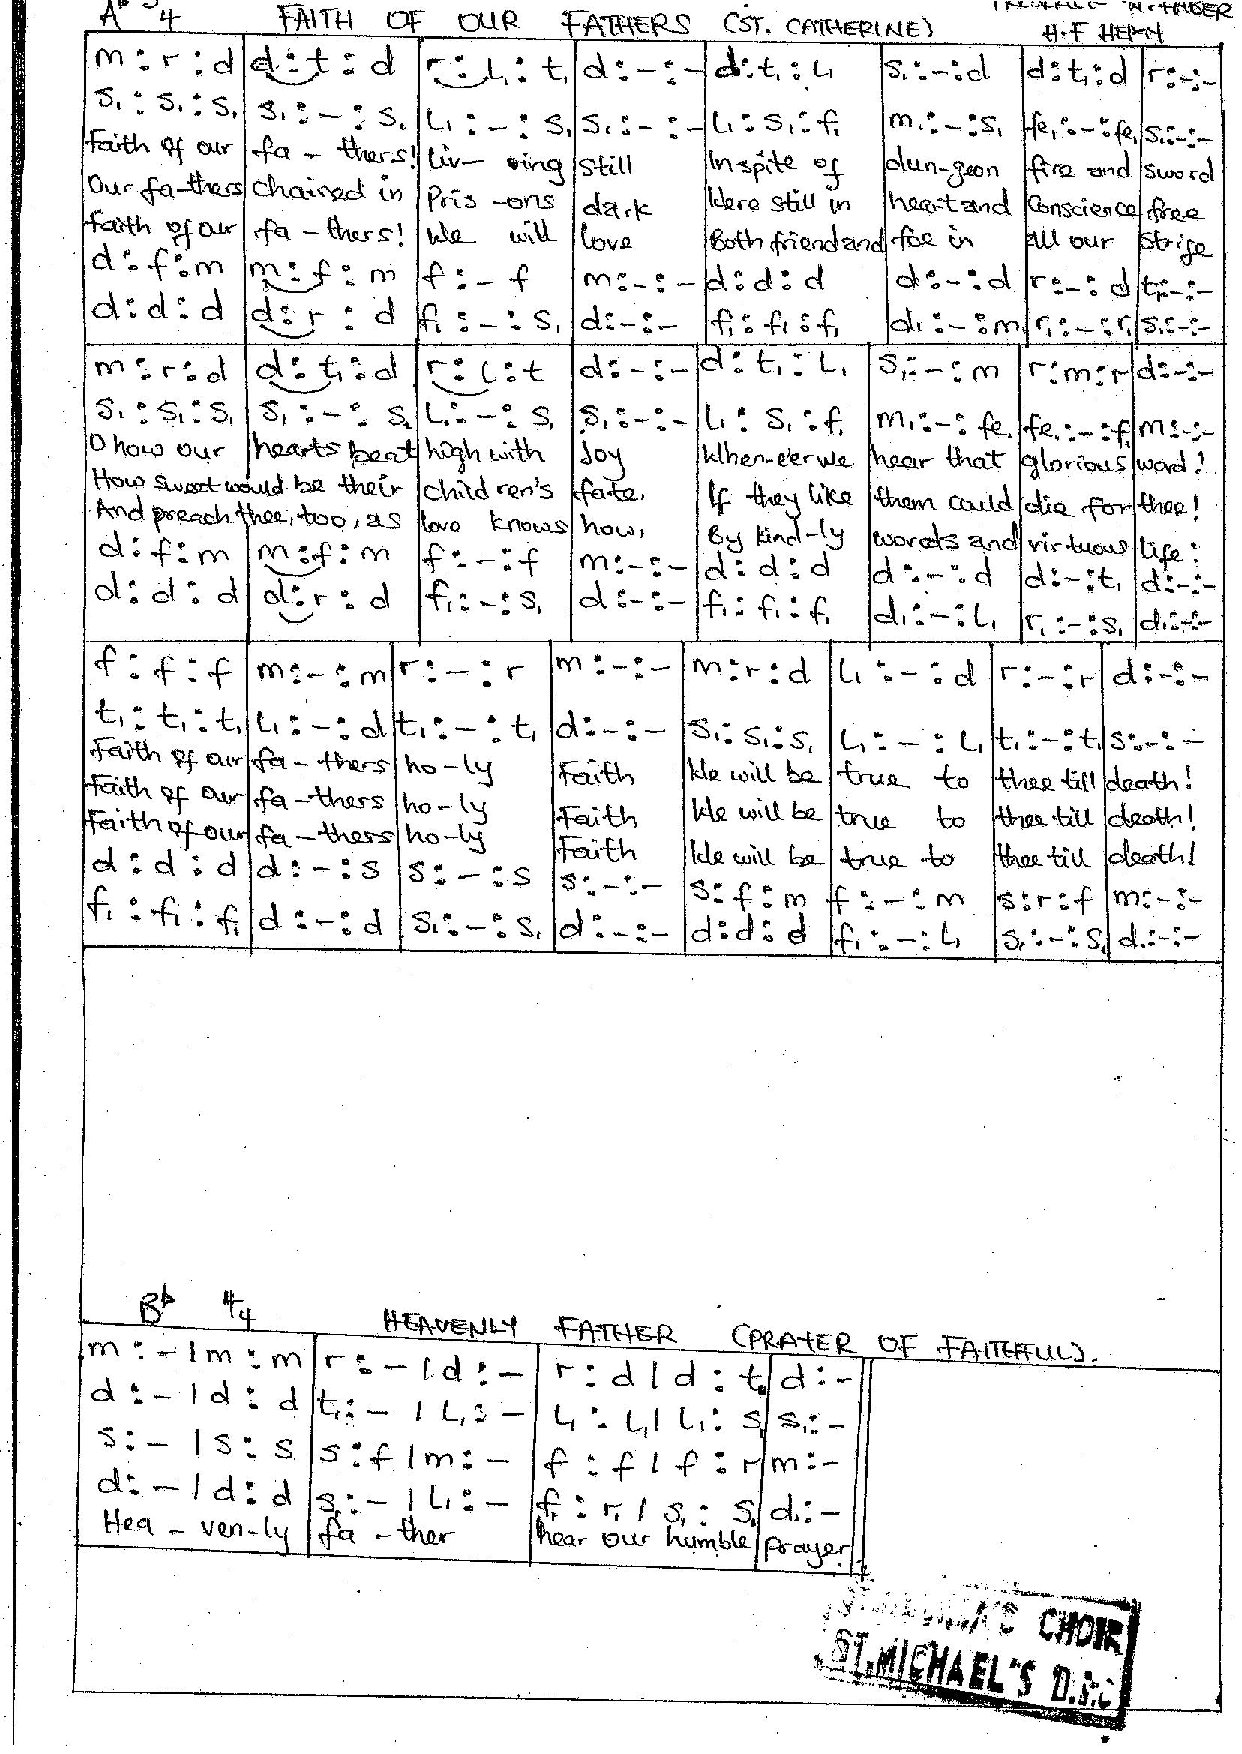 Ab 3/4 FAITH OF OUR FATHERS (ST. CATHERINE)
H.F HEMY
m : r : d | d : t : d | r : l₁ : t₁ | d : - : - | d : t₁ : l₁ | s₁ : - : d | d : t₁ : d | r : - : -
s₁ : s₁ : s₁ | s₁ : - : s₁ | l₁ : - : s₁ | s₁ : - : - | l₁ : s₁ : f₁ | m₁ : - : s₁ | fe₁ : - : fe₁ | s₁ : - : -
Faith of our | fa - thers! | Liv - ving | still | Inspite of | dun-geon | fire and | sword
Our fa-thers | chained in | Pris -ons | dark | Were still in | heart and | Conscience | free
Faith of our | fa - thers! | We will | love | Both friend and | foe in | all our | strife
d : f : m | m : f : m | f : - f | m : - : - | d : d : d | d : - : d | r : - : d | t₁ : - : -
d : d : d | d : r : d | f₁ : - : s₁ | d : - : - | f₁ : f₁ : f₁ | d₁ : - : m₁ | r₁ : - : r₁ | s₁ : - : -
m : r : d | d : t₁ : d | r : l : t | d : - : - | d : t₁ : l₁ | s₁ : - : m | r : m : r | d : - : -
s₁ : s₁ : s₁ | s₁ : - : s₁ | l₁ : - : s₁ | s₁ : - : - | l₁ : s₁ : f₁ | m₁ : - : fe₁ | fe₁ : - : f₁ | m : - : -
O how our | hearts beat | high with | Joy | When-e'er we | hear that | glorious | word!
How sweet would be their | children's | fate, | If they like | them could | die for | thee!
And preach thee, too, as | love knows | how, | By kind-ly | words and | virtuous | life:
d : f : m | m : f : m | f : - : f | m : - : - | d : d : d | d : - : d | d : - : t₁ | d : - : -
d : d : d | d : r : d | f₁ : - : s₁ | d : - : - | f₁ : f₁ : f₁ | d₁ : - : l₁ | r₁ : - : s₁ | d₁ : - : -
f : f : f | m : - : m | r : - : r | m : - : - | m : r : d | l₁ : - : d | r : - : r | d : - : -
t₁ : t₁ : t₁ | l₁ : - : d | t₁ : - : t₁ | d : - : - | s₁ : s₁ : s₁ | l₁ : - : l₁ | t₁ : - : t₁ | s : - : -
Faith of our | fa - thers | ho - ly | Faith | We will be | true to | thee till | death!
Faith of our | fa - thers | ho - ly | Faith | We will be | true to | thee till | death!
Faith of our | fa - thers | ho - ly | Faith | We will be | true to | thee till | death!
d : d : d | d : - : s | s : - : s | s : - : - | s : f : m | f : - : m | s : r : f | m : - : -
f₁ : f₁ : f₁ | d : - : d | s₁ : - : s₁ | d : - : - | d : d : d | f₁ : - : l₁ | s₁ : - : s₁ | d : - : -
Bb 4/4 HEAVENLY FATHER (PRAYER OF FAITHFUL).
m : - | m : m | r : - | d : - | r : d | d : t₁ | d : -
d : - | d : d | t₁ : - | l₁ : - | l₁ : l₁ | l₁ : s₁ | s₁ : -
s : - | s : s | s : f | m : - | f : f | f : r | m : -
d : - | d : d | s₁ : - | l₁ : - | f₁ : r₁ | s₁ : s₁ | d₁ : -
Hea - ven-ly | fa - ther | hear our humble | prayer
CHOIR
ST. MICHAEL'S D.S.C